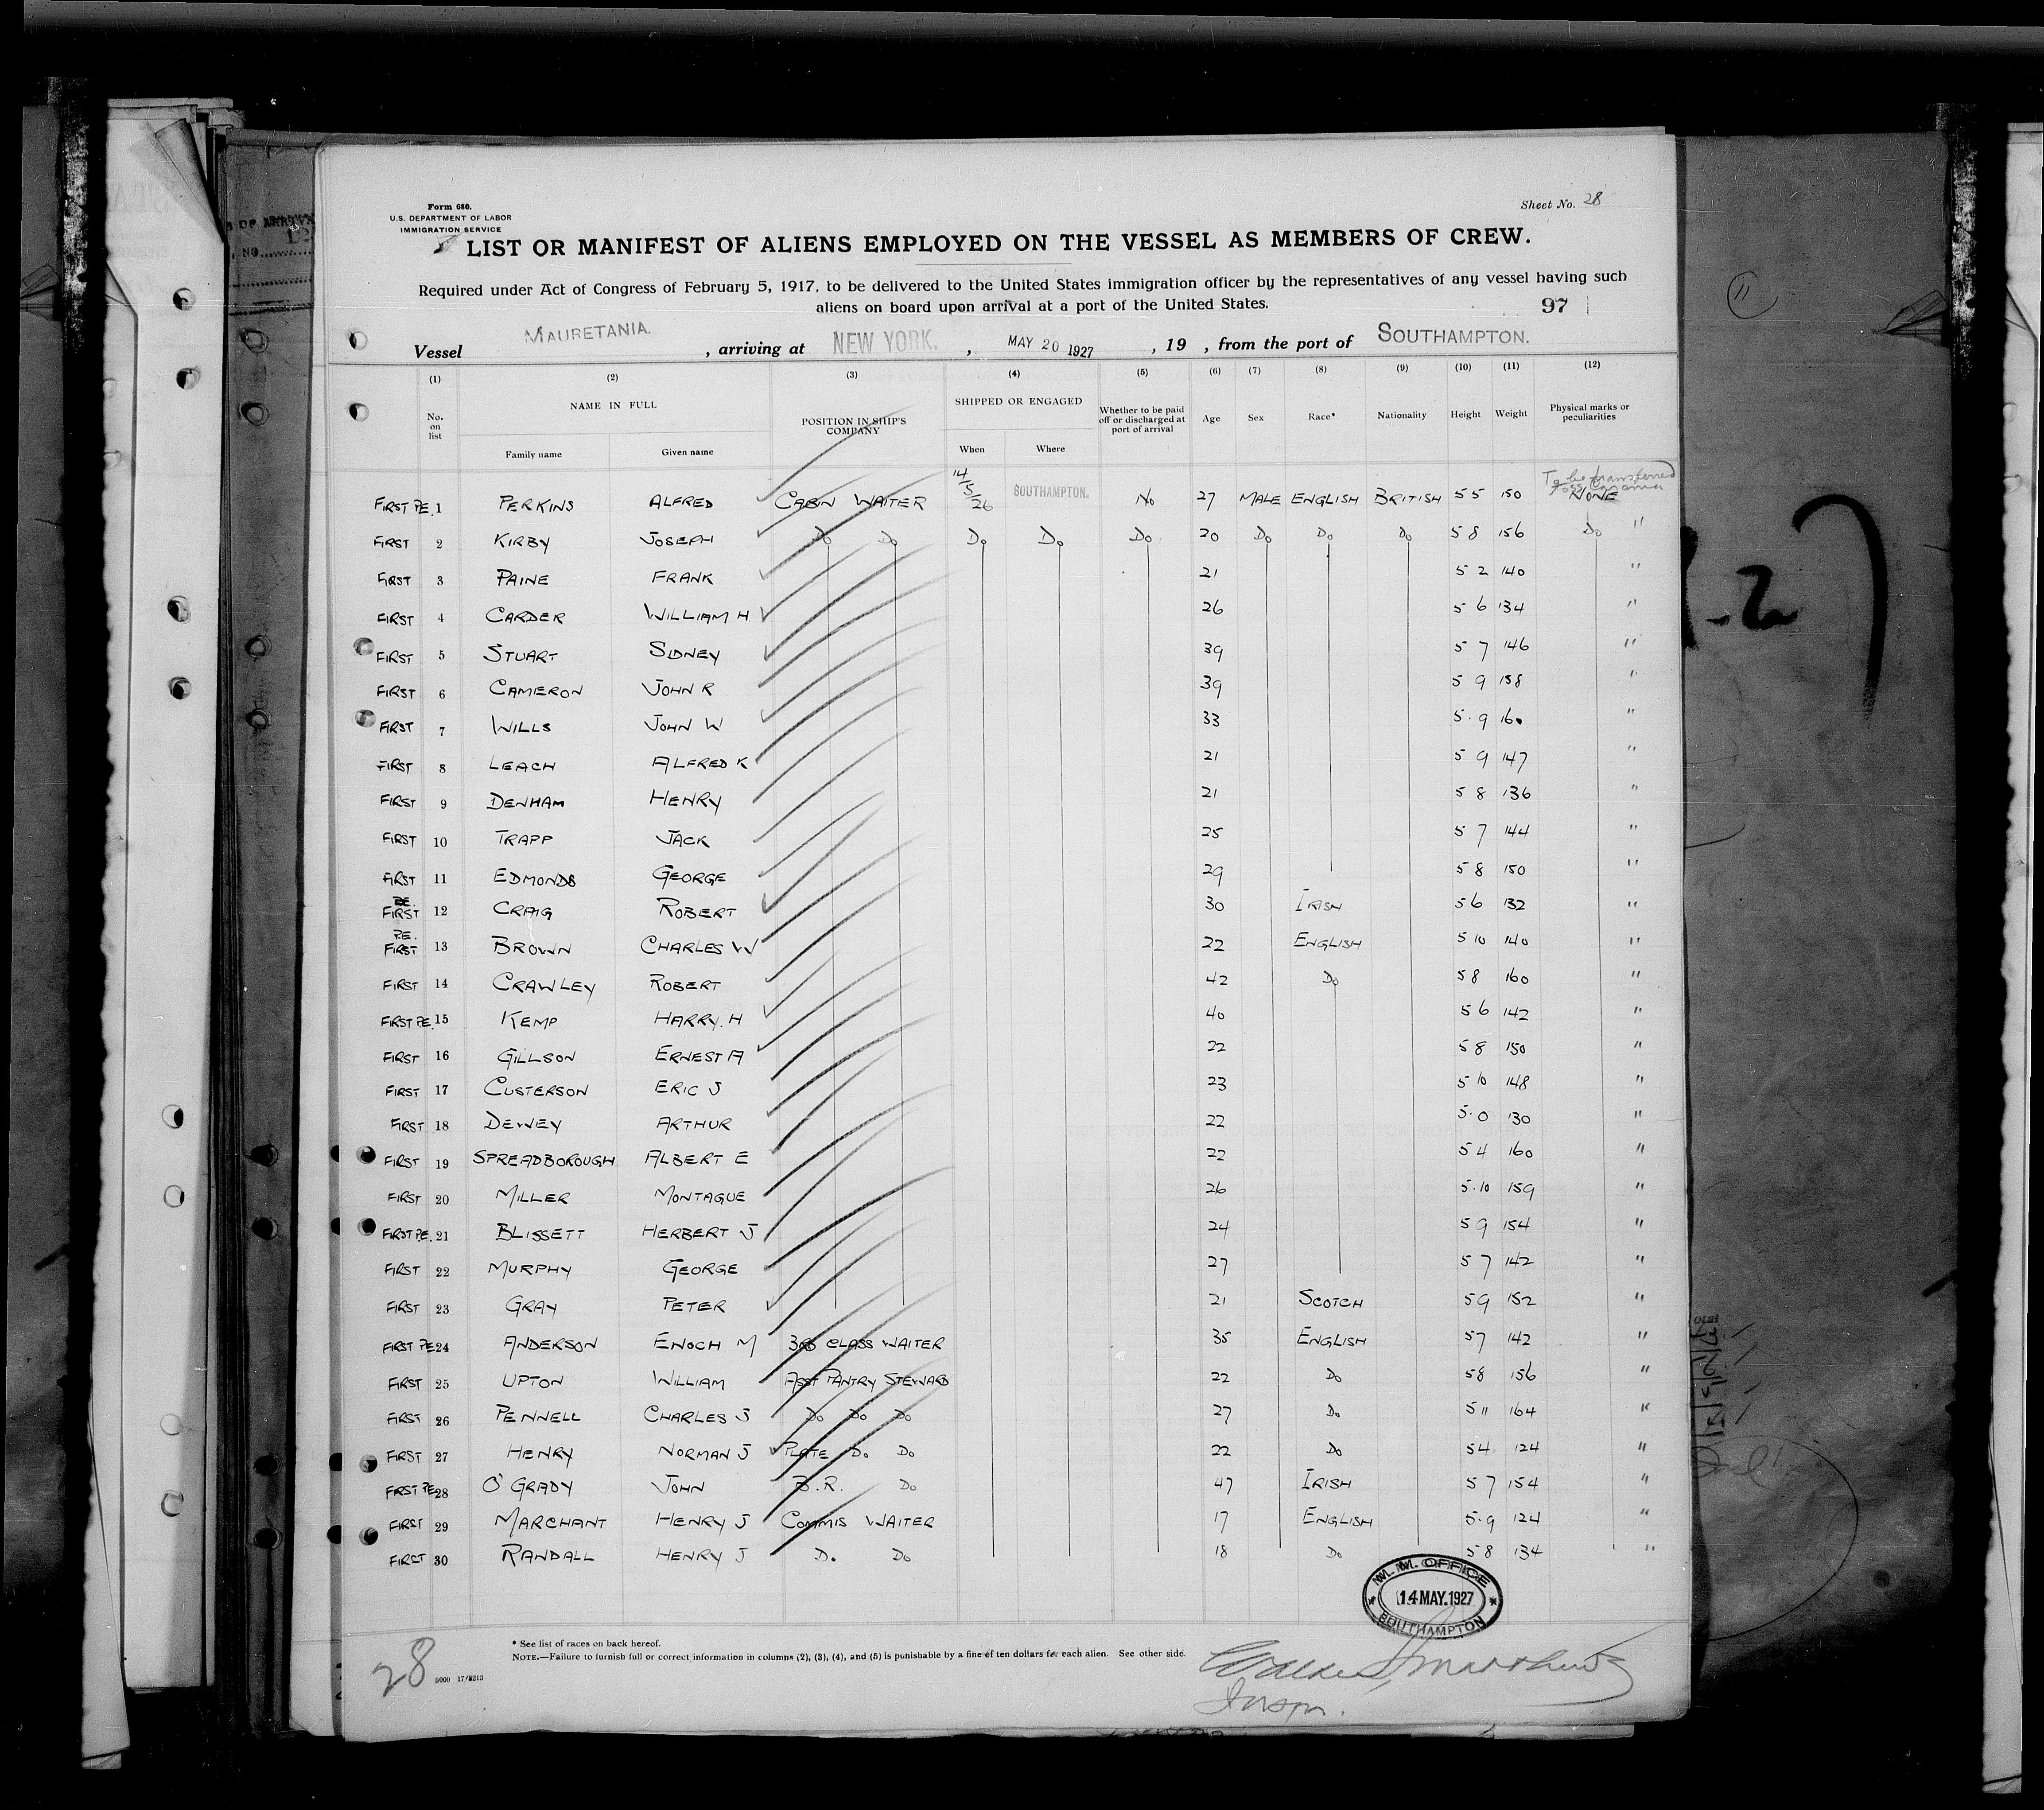 Form 680.
U.S. DEPARTMENT OF LABOR
IMMIGRATION SERVICE
Sheet No. 28
LIST OR MANIFEST OF ALIENS EMPLOYED ON THE VESSEL AS MEMBERS OF CREW.
Required under Act of Congress of February 5, 1917, to be delivered to the United States immigration officer by the representatives of any vessel having such
aliens on board upon arrival at a port of the United States.
97
Vessel MAURETANIA. , arriving at NEW YORK. , MAY 20 1927 , 19 , from the port of SOUTHAMPTON.
(1) (2) (3) (4) (5) (6) (7) (8) (9) (10) (11) (12)
No. on list NAME IN FULL Family name Given name POSITION IN SHIP'S COMPANY SHIPPED OR ENGAGED When Where Whether to be paid off or discharged at port of arrival Age Sex Race* Nationality Height Weight Physical marks or peculiarities
To be transferred
FIRST P.E. 1 PERKINS ALFRED CABIN WAITER 14/5/26 SOUTHAMPTON. No 27 MALE ENGLISH BRITISH 5 5 150 NONE
FIRST 2 KIRBY JOSEPH Do Do Do Do Do 20 Do Do Do 5 8 156 Do "
FIRST 3 PAINE FRANK 21 5 2 140 "
FIRST 4 CARDER WILLIAM H 26 5 6 134 "
FIRST 5 STUART SIDNEY 39 5 7 146 "
FIRST 6 CAMERON JOHN R 39 5 9 158 "
FIRST 7 WILLS JOHN W 33 5.9 160 "
FIRST 8 LEACH ALFRED K 21 5 9 147 "
FIRST 9 DENHAM HENRY 21 5 8 136 "
FIRST 10 TRAPP JACK 25 5 7 144 "
FIRST 11 EDMONDS GEORGE 29 5 8 150 "
P.E. FIRST 12 CRAIG ROBERT 30 IRISH 5 6 132 "
P.E. FIRST 13 BROWN CHARLES W 22 ENGLISH 5 10 140 "
FIRST 14 CRAWLEY ROBERT 42 Do 5 8 160 "
FIRST P.E. 15 KEMP HARRY. H 40 5 6 142 "
FIRST 16 GILLSON ERNEST A 22 5 8 150 "
FIRST 17 CUSTERSON ERIC J 23 5 10 148 "
FIRST 18 DEWEY ARTHUR 22 5.0 130 "
FIRST 19 SPREADBOROUGH ALBERT E 22 5 4 160 "
FIRST 20 MILLER MONTAGUE 26 5.10 159 "
FIRST P.E. 21 BLISSETT HERBERT J 24 5 9 154 "
FIRST 22 MURPHY GEORGE 27 5 7 142 "
FIRST 23 GRAY PETER 21 SCOTCH 5 9 152 "
FIRST P.E. 24 ANDERSON ENOCH M 3RD CLASS WAITER 35 ENGLISH 5 7 142 "
FIRST 25 UPTON WILLIAM ASST PANTRY STEWARD 22 Do 5 8 156 "
FIRST 26 PENNELL CHARLES J Do Do Do 27 Do 5 11 164 "
FIRST 27 HENRY NORMAN J PLATE Do Do 22 Do 5 4 124 "
FIRST P.E. 28 O'GRADY JOHN B.R. Do 47 IRISH 5 7 154 "
FIRST 29 MARCHANT HENRY J COMMIS WAITER 17 ENGLISH 5.9 124 "
FIRST 30 RANDALL HENRY J Do Do 18 Do 5 8 134 "
M.M. OFFICE
14 MAY. 1927
SOUTHAMPTON
* See list of races on back hereof.
NOTE.—Failure to furnish full or correct information in columns (2), (3), (4), and (5) is punishable by a fine of ten dollars for each alien. See other side.
28
5000 17/8213
Inspr.
11